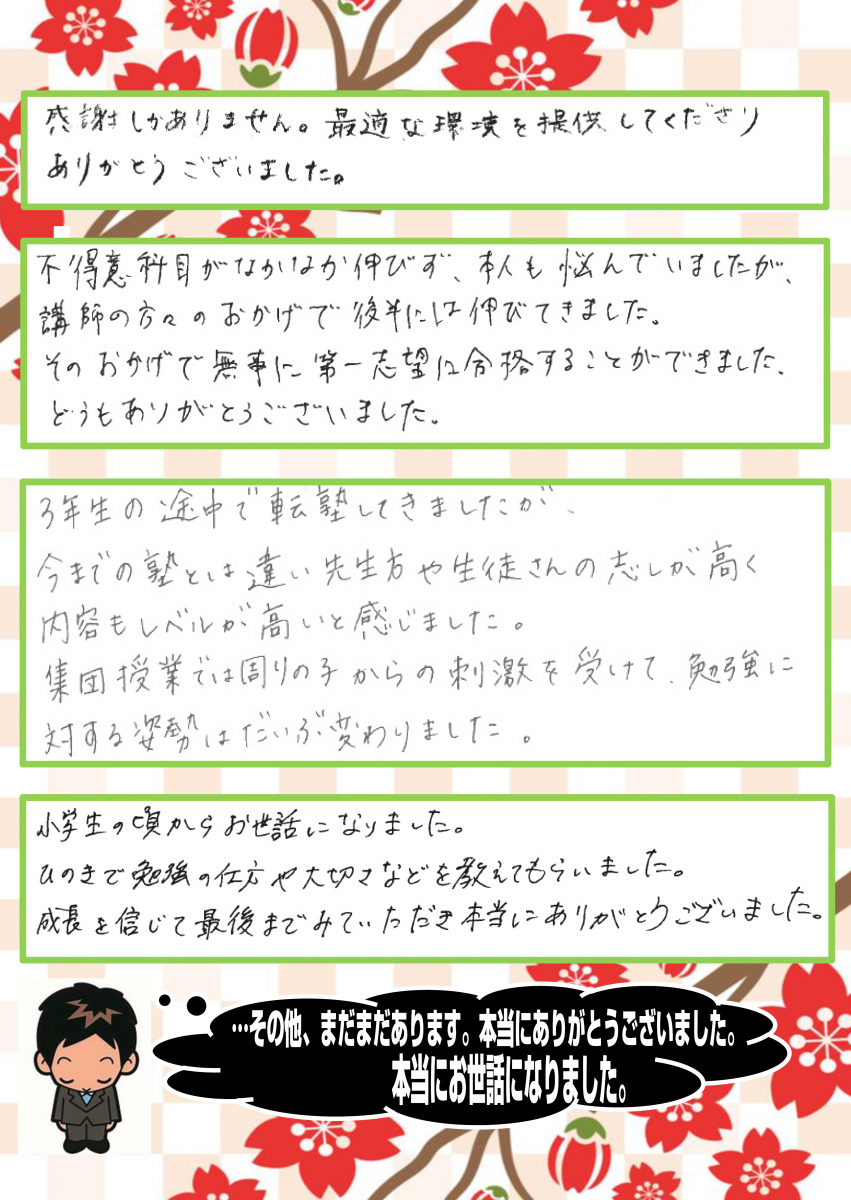 感謝しかありません。最適な環境を提供してくださり
ありがとうございました。
不得意科目がなかなか伸びず、本人も悩んでいましたが、
講師の方々のおかげで後半には伸びてきました。
そのおかげで無事に第一志望に合格することができました、
どうもありがとうございました。
3年生の途中で転塾してきましたが、
今までの塾とは違い先生方や生徒さんの志しが高く
内容もレベルが高いと感じました。
集団授業では周りの子からの刺激を受けて、勉強に
対する姿勢はだいぶ変わりました。
小学生の頃からお世話になりました。
ひのきで勉強の仕方や大切さなどを教えてもらいました。
成長を信じて最後までみていただき本当にありがとうございました。
…その他、まだまだあります。本当にありがとうございました。
本当にお世話になりました。